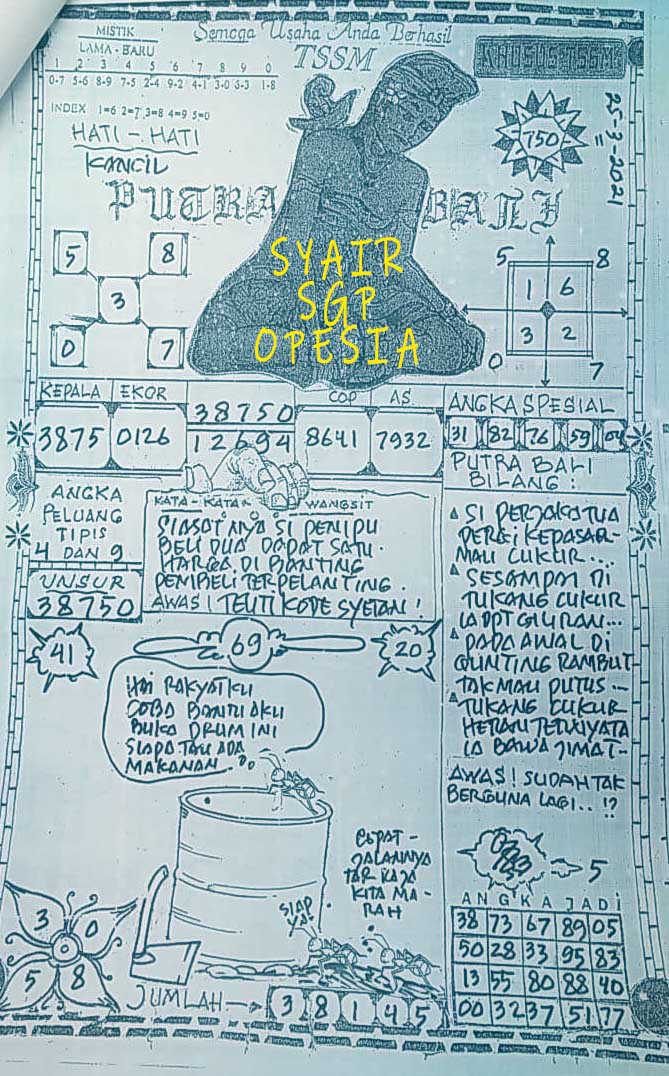 MISTIK
LAMA - BARU
1 2 3 4 5 6 7 8 9 0
0-7 5-6 8-9 7-5 2-4 9-2 4-1 3-0 6-3 1-8
INDEX 1=6 2=7 3=8 4=9 5=0
HATI - HATI
KANCIL
Semoga Usaha Anda Berhasil
TSSM
KHUSUS TSSM
750
25-3-2021
PUTRA BALI
SYAIR
SGP
OPESIA
5 8
3
0 7
5 8
1 6
3 2
0 7
KEPALA EKOR
3875 0126
38750
12694
COP AS
8641 7932
ANGKA SPESIAL
31 82 76 59 04
ANGKA
PELUANG
TIPIS
4 DAN 9
UNSUR
38750
KATA - KATA WANGSIT
SIASATNYA SI PENIPU
BELI DUA DAPAT SATU.
HARGA DI BANTING
PEMBELI TERPELANTING.
AWAS! TELITI KODE SYETAN!
PUTRA BALI
BILANG :
SI PERJAKA TUA
PERGI KEPASAR-
MAU CUKUR....
SESAMPAI DI
TUKANG CUKUR
IA DPT GILIRAN...
PADA AWAL DI
GUNTING RAMBUT
TAK MAU PUTUS ...
TUKANG CUKUR
HERAN TERNYATA
IA BAWA JIMAT..
AWAS! SUDAH TAK
BERGUNA LAGI..!?
41
69
20
HAI RAKYATKU
COBA BANTU AKU
BUKA DRUM INI
SIAPA TAU ADA
MAKANAN..
CEPAT-
JALANNYA
TAR RAJA
KITA MA-
RAH
SIAP
YA!
5
3 0
5 8
JUMLAH 3 8 1 4 5
ANGKA JADI
38 73 67 89 05
50 28 33 95 83
13 55 80 88 40
00 32 37 51 77